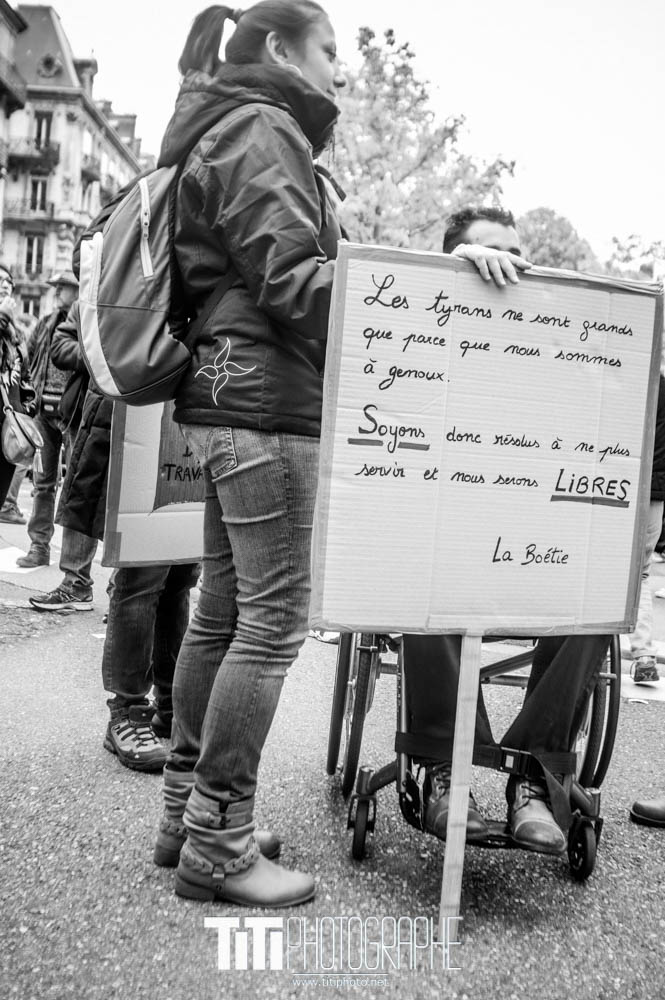 Les tyrans ne sont grands
que parce que nous sommes
à genoux.
Soyons donc résolus à ne plus
servir et nous serons LIBRES
La Boétie
TRAVA
TiTi PHOTOGRAPHE
www.titiphoto.net